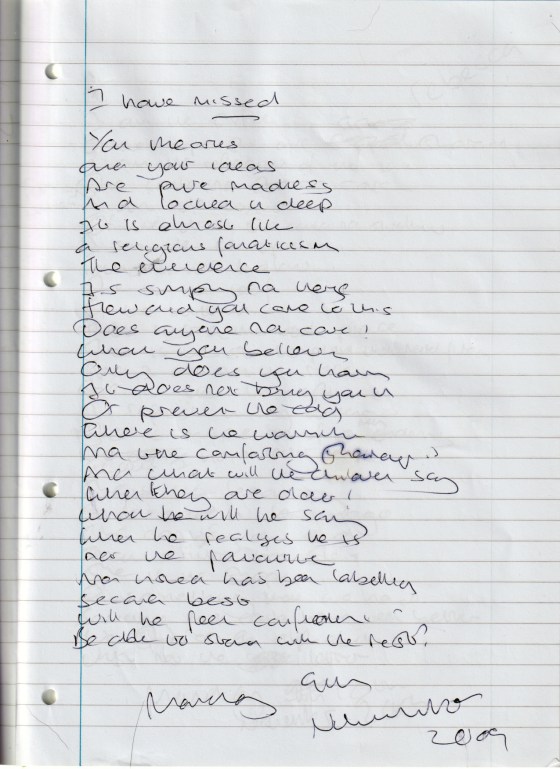 I have missed
You theories
and your ideas
Are pure madness
And locked in deep
It is almost like
a religious fanaticism
The evidence
It is simply no here
How did you come to this
Does anyone not care!
what you believe
Only does you harm
It does not bring you in
Or prevent the cold
Where is the warmth
the comforting
And what will the children say
When they are older!
What he will he say
when he realizes he is
not the favourite
has been labelled
second best
will he feel confident
Be able to stand with the rest?
2009